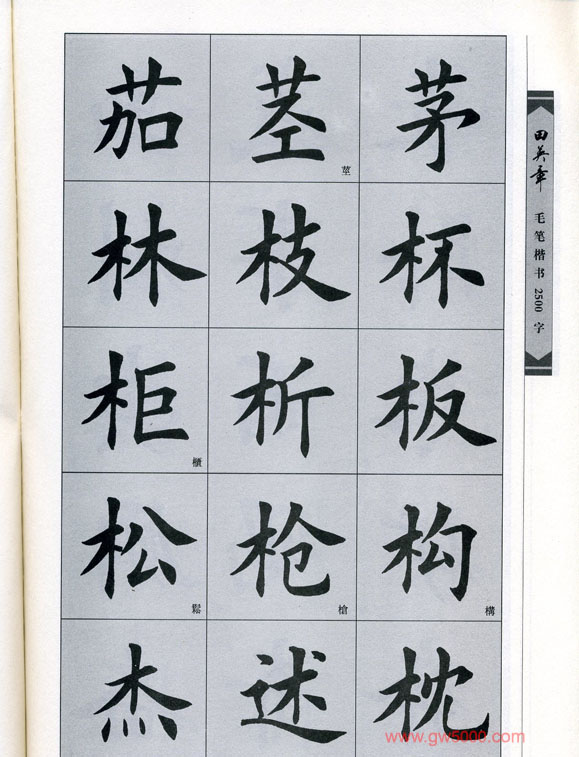 茄 茎 莖 茅
林 枝 杯
柜 櫃 析 板
松 鬆 枪 槍 构 構
杰 述 枕
田英章 毛笔楷书 2500 字
www.gw5000.com